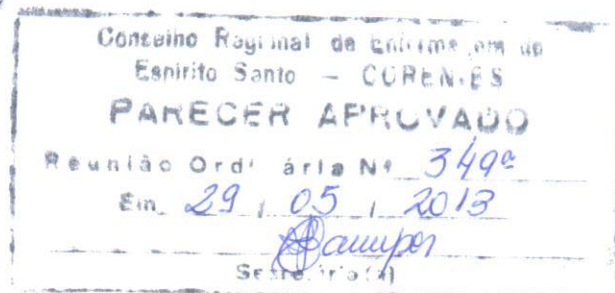 Conselho Regional de Enfermagem do
Espírito Santo – COREN-ES
PARECER APROVADO
Reunião Ordinária Nº 349ª
Em 29 / 05 / 2013
Secretário(a)